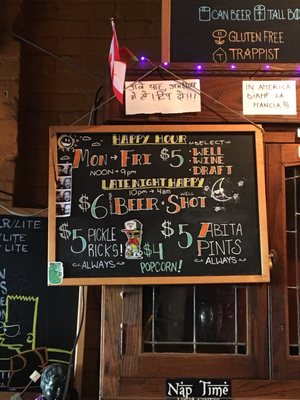 CAN BEER
TALL BO
GLUTEN FREE
TRAPPIST
IN AMERICA
DIAMF LA
MANCIA!
HAPPY HOUR
MON → FRI
NOON → 9PM
$5
WELL
WINE
DRAFT
LATE NIGHT HAPPY
10PM → 4AM
$6
SELECT
BEER + SHOT
WELL
$5 PICKLE
RICK'S!
ALWAYS
$4
POPCORN!
$5 ABITA
PINTS
ALWAYS
R/LITE
LITE
NAP TIME